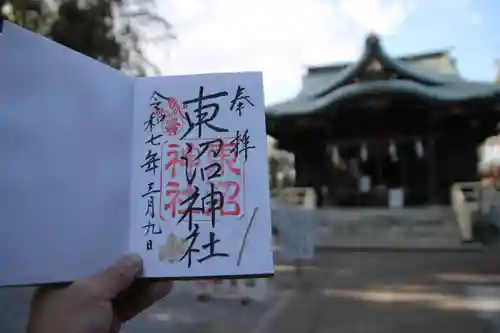 奉拝
東沼神社
東沼
神社
令和七年三月九日